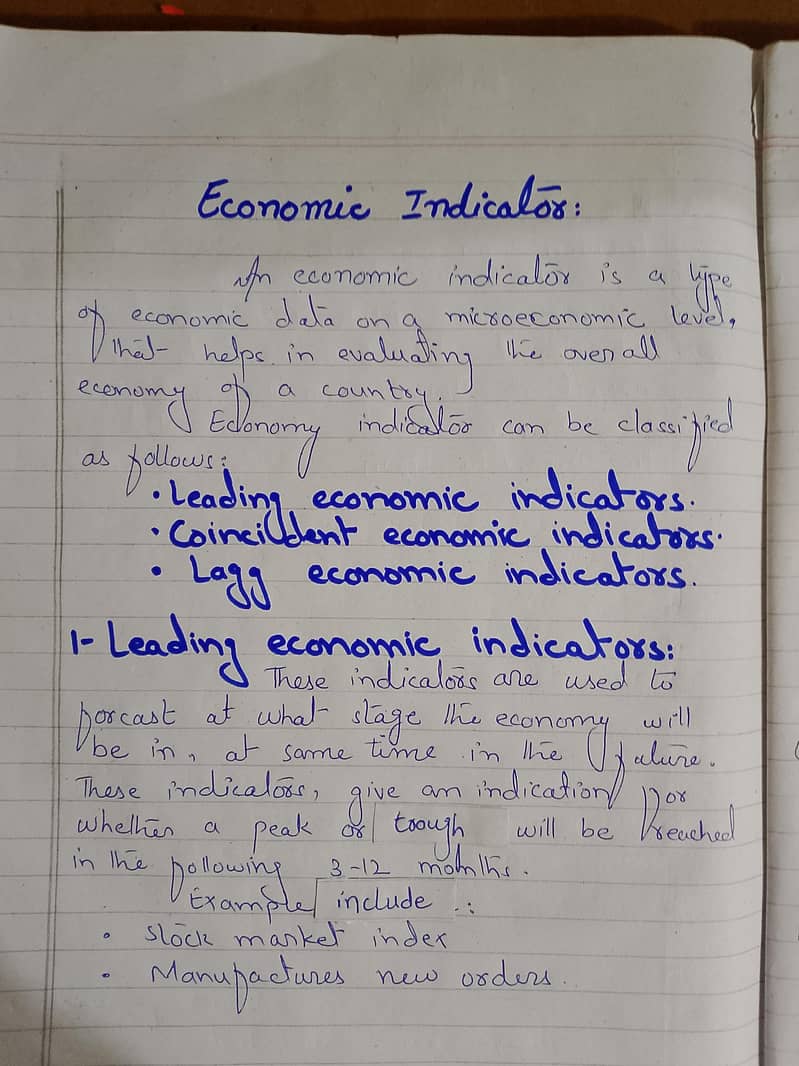 Economic Indicator:
An economic indicator is a type
of economic data on a microeconomic level,
that helps in evaluating the overall
economy of a country.
Economy indicator can be classified
as follows:
• Leading economic indicators.
• Coincildent economic indicators.
• Lagg economic indicators.
1- Leading economic indicators:
These indicators are used to
forcast at what stage the economy will
be in, at same time in the future.
These indicators, give an indication for
whether a peak or trough will be reached
in the following 3-12 months.
Example include :
• Stock market index
• Manufactures new orders.